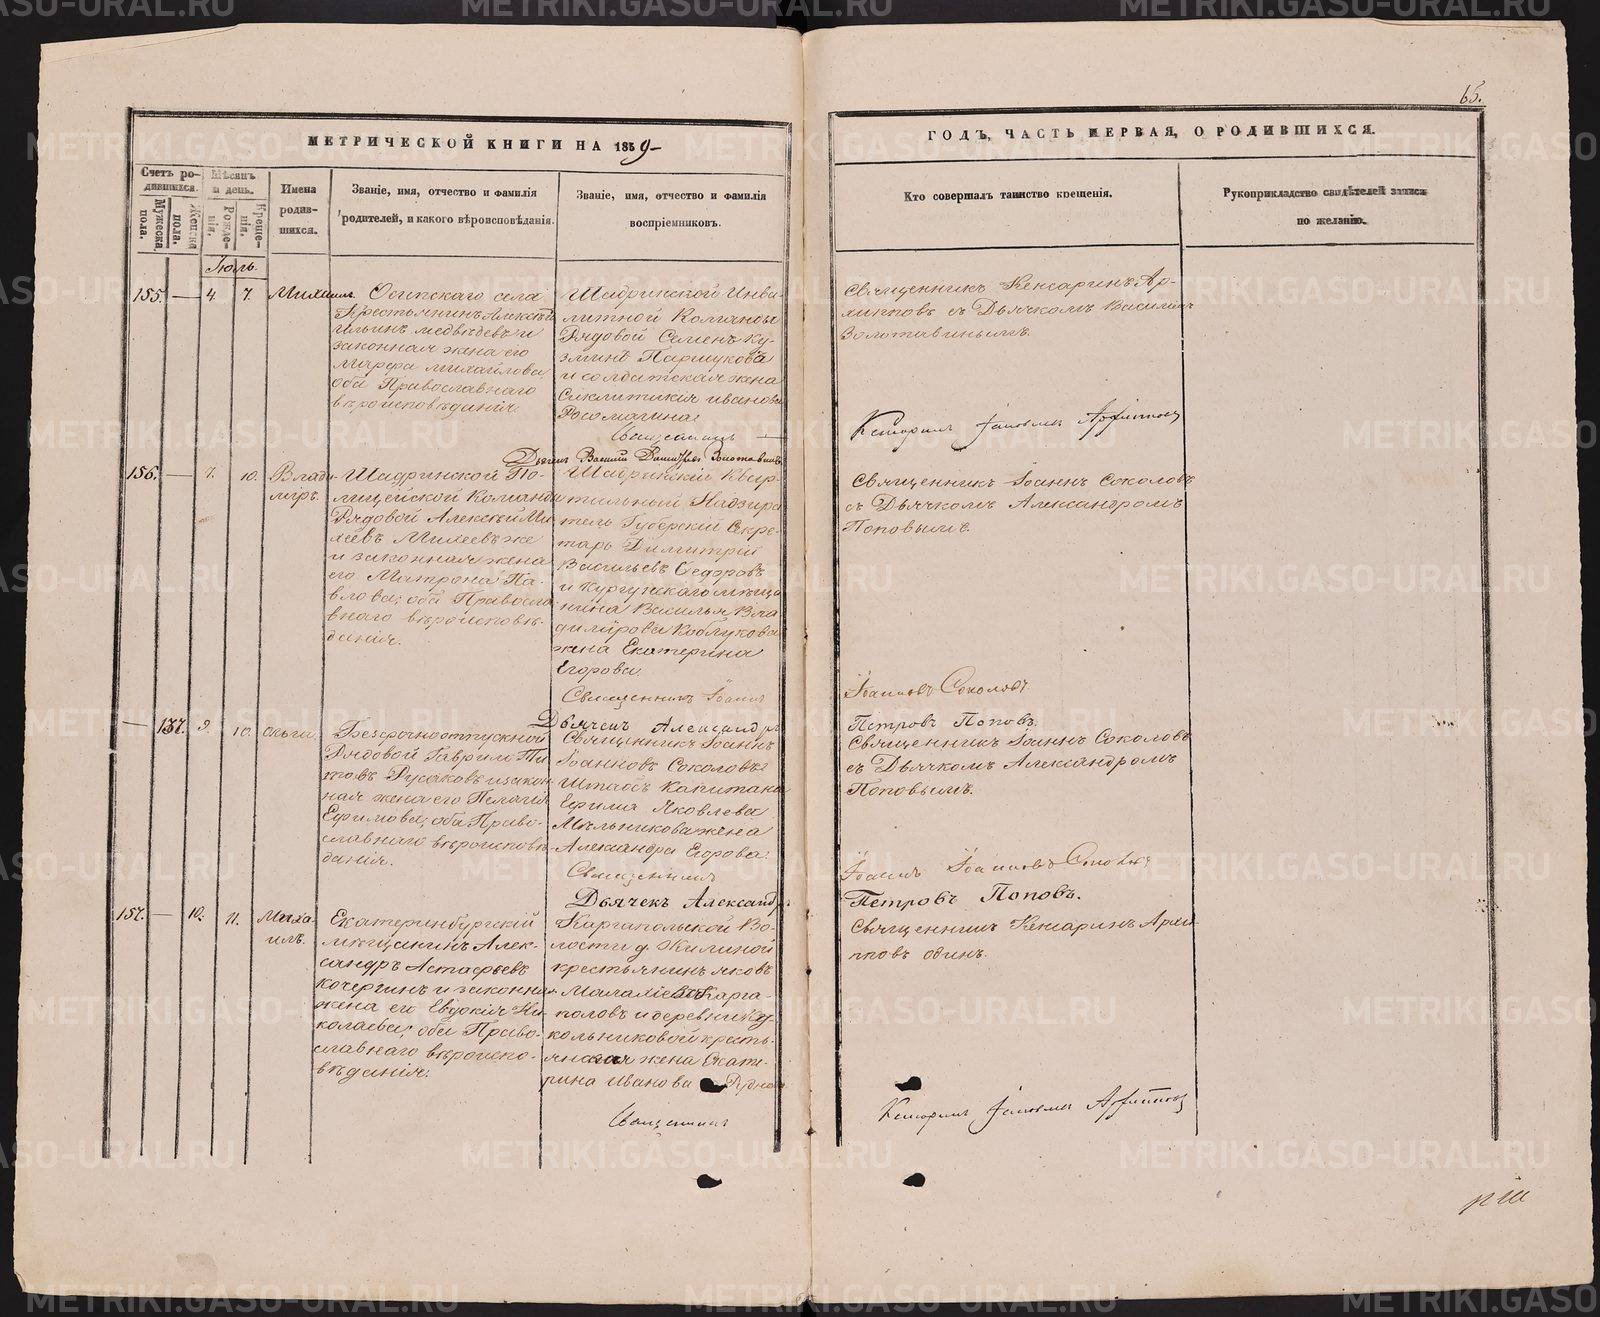 65.
МЕТРИЧЕСКОЙ КНИГИ НА 1859
ГОДЪ, ЧАСТЬ ПЕРВАЯ, О РОДИВШИХСЯ.
Счетъ родившихся.
Мужеска пола.
Женска пола.
Мѣсяцъ и день.
Рожденія.
Крещенія.
Имена родившихся.
Званіе, имя, отчество и фамилія
родителей, и какого вѣроисповѣданія.
Званіе, имя, отчество и фамилія
воспріемниковъ.
Кто совершалъ таинство крещенія.
Рукоприкладство свидѣтелей записи
по желанію.
Іюль.
155. — 4 7. Михаилъ
Осипскаго села
Крестьянинъ Алексѣй
Ильинъ Медвѣдевъ и
законная жена его
Марфа Михайлова
оба Православнаго
вѣроисповѣданія.
Шадринской Инва-
лидной Команды
Рядовой Семенъ Ку-
зминъ Паршуковъ
и солдатская жена
Секлитикія Иванова
Росомагина
Священникъ —
Дьячекъ Василій Золотавинъ
Священникъ Кенсаринъ Ар-
хиповъ съ Дьячкомъ Василіемъ
Золотавинымъ.
156. — 7. 10. Влади-
миръ.
Шадринской По-
лицейской Команды
Рядовой Алексѣй Ми-
хеевъ Михеевъ же
и законная жена
его Матрона Па-
влова; оба Правосла-
внаго вѣроисповѣ-
данія.
Шадринскій Квар-
тальный Надзира-
тель Губерскій Секре-
тарь Димитрій
Васильевъ Ѳедоровъ
и Кургунскаго мѣща-
нина Василья Вла-
димірова Коблукова
жена Екатерина
Егорова
Священникъ Іоаннъ
Дьячекъ Александръ
Священникъ Іоаннъ Соколовъ
съ Дьячкомъ Александромъ
Поповымъ.
Іоанновъ Соколовъ
Петровъ Поповъ
— 137. 9. 10. Ольга
Безсрочноотпускной
Рядовой Гаврило Ти-
товъ Русаковъ и закон-
ная жена его Пелагія
Ефимова; оба Право-
славнаго вѣроисповѣ-
данія.
Священникъ Іоаннъ
Іоанновъ Соколовъ
Штабсъ Капитана
Ефима Яковлева
Мѣльникова жена
Александра Егорова.
Священникъ
Дьячекъ Александръ
Священникъ Іоаннъ Соколовъ
съ Дьячкомъ Александромъ
Поповымъ.
Іоаннъ Іоанновъ Соколовъ
Петровъ Поповъ.
157. — 10. 11. Миха-
илъ.
Екатеринбургскій
мѣщанинъ Алек-
сандръ Астафьевъ
Кочергинъ и законная
жена его Евдокія Ни-
колаева; оба Право-
славнаго вѣроиспо-
вѣданія.
Каргапольской Во-
лости д. Жилиной
крестьянинъ Яковъ
Малахіевъ Карга-
половъ и деревни
кольниковой кресть-
янская жена Екате-
рина Иванова
Священникъ
Священникъ Кенсаринъ Архи-
повъ одинъ.